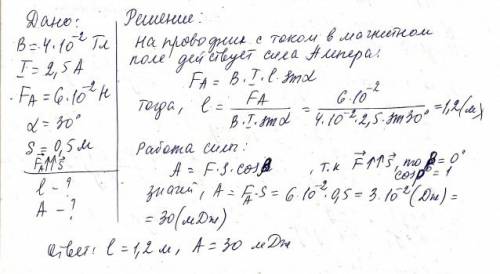 Дано:
B = 4·10⁻² Тл
I = 2,5 А
F_A = 6·10⁻² Н
α = 30°
S = 0,5 м
F⃗_A↑↑S⃗
l - ?
A - ?
Решение:
На проводник с током в магнитном
поле действует сила Ампера:
F_A = B·I·l·sinα
тогда, l = F_A / (B·I·sinα) = 6·10⁻² / (4·10⁻²·2,5·sin30°) = 1,2 (м)
Работа силы:
A = F·S·cosβ , т.к F⃗↑↑S⃗, то β = 0°
cosβ = 1
значит, A = F_A·S = 6·10⁻²·0,5 = 3·10⁻² (Дж) =
= 30 (мДж)
Ответ: l = 1,2 м, A = 30 мДж